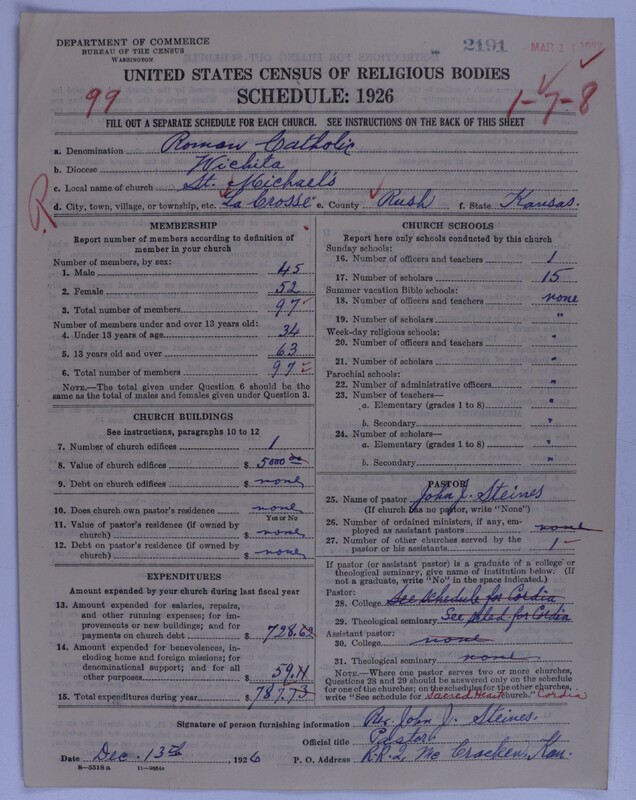 DEPARTMENT OF COMMERCE
BUREAU OF THE CENSUS
WASHINGTON
2191
UNITED STATES CENSUS OF RELIGIOUS BODIES
SCHEDULE: 1926
99
1-7-8
FILL OUT A SEPARATE SCHEDULE FOR EACH CHURCH. SEE INSTRUCTIONS ON THE BACK OF THIS SHEET
a. Denomination Roman Catholic
b. Diocese Wichita
c. Local name of church St. Michael's
d. City, town, village, or township, etc. La Crosse e. County Rush f. State Kansas.
R
MEMBERSHIP
Report number of members according to definition of
member in your church
Number of members, by sex:
1. Male 45
2. Female 52
3. Total number of members 97
Number of members under and over 13 years old:
4. Under 13 years of age 34
5. 13 years old and over 63
6. Total number of members 97
NOTE.—The total given under Question 6 should be
the same as the total of males and females given under Question 3.
CHURCH BUILDINGS
See instructions, paragraphs 10 to 12
7. Number of church edifices 1
8. Value of church edifices $ 5000 00
9. Debt on church edifices $ none
10. Does church own pastor's residence none
Yes or No
11. Value of pastor's residence (if owned by
church) $ none
12. Debt on pastor's residence (if owned by
church) $ none
EXPENDITURES
Amount expended by your church during last fiscal year
13. Amount expended for salaries, repairs,
and other running expenses; for im-
provements or new buildings; and for
payments on church debt $ 728.62
14. Amount expended for benevolences, in-
cluding home and foreign missions; for
denominational support; and for all
other purposes $ 59.11
15. Total expenditures during year $ 787.73
CHURCH SCHOOLS
Report here only schools conducted by this church
Sunday schools:
16. Number of officers and teachers 1
17. Number of scholars 15
Summer vacation Bible schools:
18. Number of officers and teachers none
19. Number of scholars "
Week-day religious schools:
20. Number of officers and teachers "
21. Number of scholars "
Parochial schools:
22. Number of administrative officers "
23. Number of teachers—
a. Elementary (grades 1 to 8) "
b. Secondary "
24. Number of scholars—
a. Elementary (grades 1 to 8) "
b. Secondary "
PASTOR
25. Name of pastor John J. Steines
(If church has no pastor, write "None")
26. Number of ordained ministers, if any, em-
ployed as assistant pastors none
27. Number of other churches served by the
pastor or his assistants 1
If pastor (or assistant pastor) is a graduate of a college or
theological seminary, give name of institution below. (If
not a graduate, write "No" in the space indicated.)
Pastor:
28. College See schedule for Cordia
29. Theological seminary See filed for Cordia
Assistant pastor:
30. College none
31. Theological seminary none
NOTE.—Where one pastor serves two or more churches,
Questions 28 and 29 should be answered only on the schedule
for one of the churches; on the schedules for the other churches,
write "See schedule for Sacred Heart church." Cordia
Signature of person furnishing information Rev. John J. Steines.
Official title Pastor
Date Dec. 13th, 1926 P. O. Address R.R. 2, Mc Cracken, Kan.
8—5518a